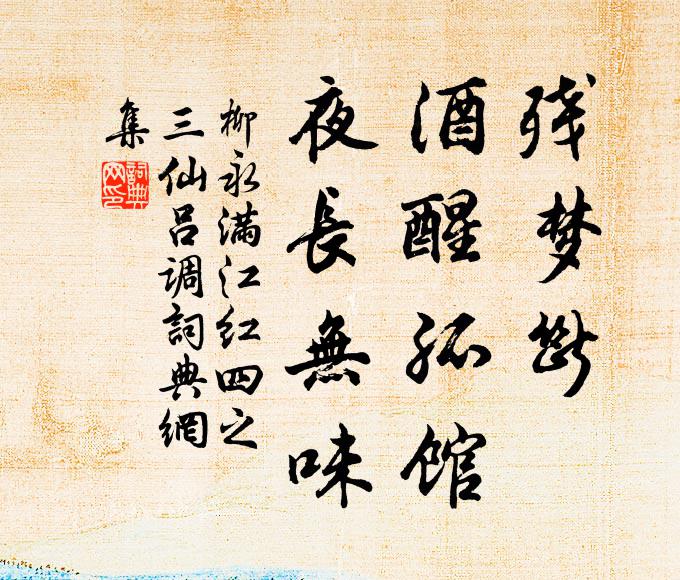 残梦断
酒醒孤馆
夜長無味
柳永满江红四之
三仙吕调詞典網
集
詞典
网印